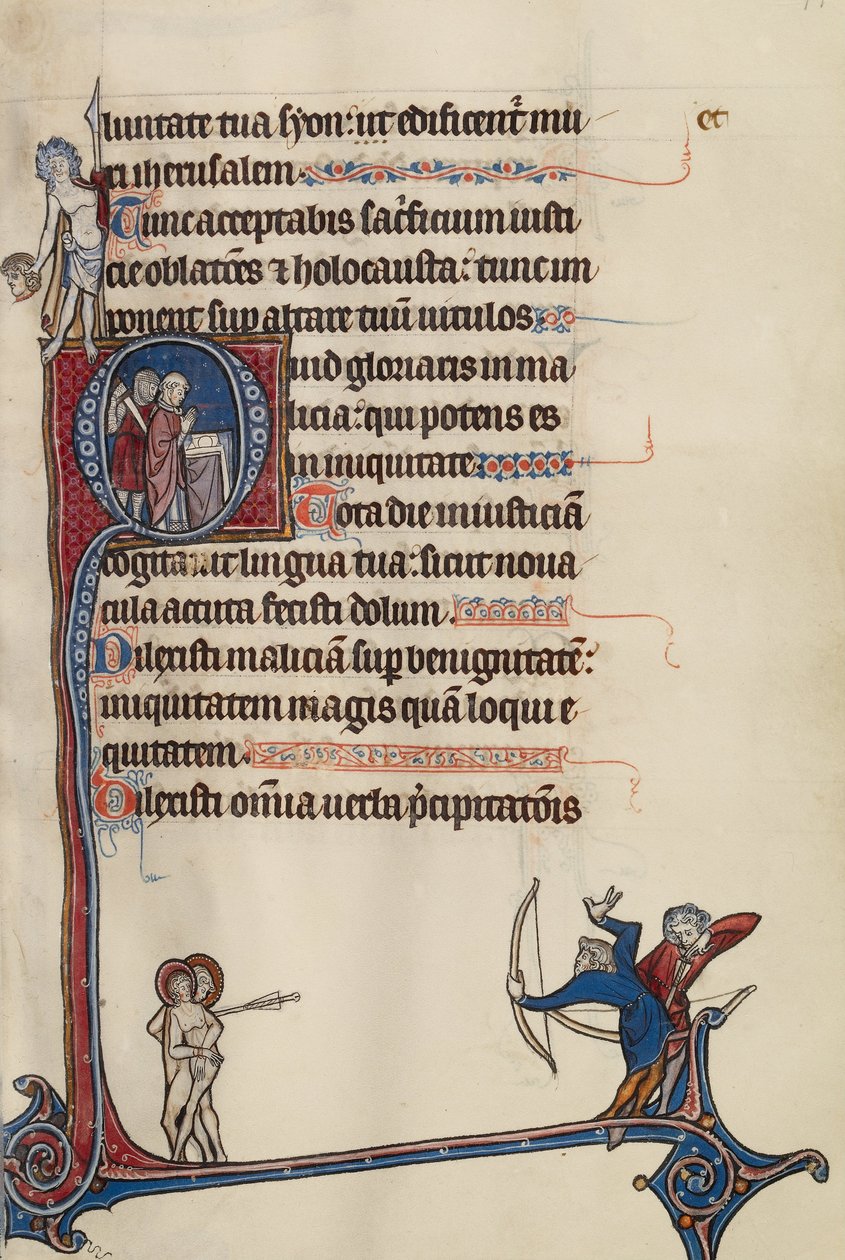 luntate tua syon: ut edificent᷑ mu
et
ri iherusalem.
Tunc acceptabis sac̾ficium iusti
cie oblatōes ⁊ holocausta: tunc im
ponent sup altare tuū uitulos
Quid gloriaris in ma
licia: qui potens es
in iniquitate
Tota die iniusticiā
cogitauit lingua tua: sicut noua
cula accuta fecisti dolum.
Dilexisti maliciā suꝑ benignitatē:
iniquitatem magis quā loqui e
quitatem.
Dilexisti om̄ia uerba p̄cipitatōis